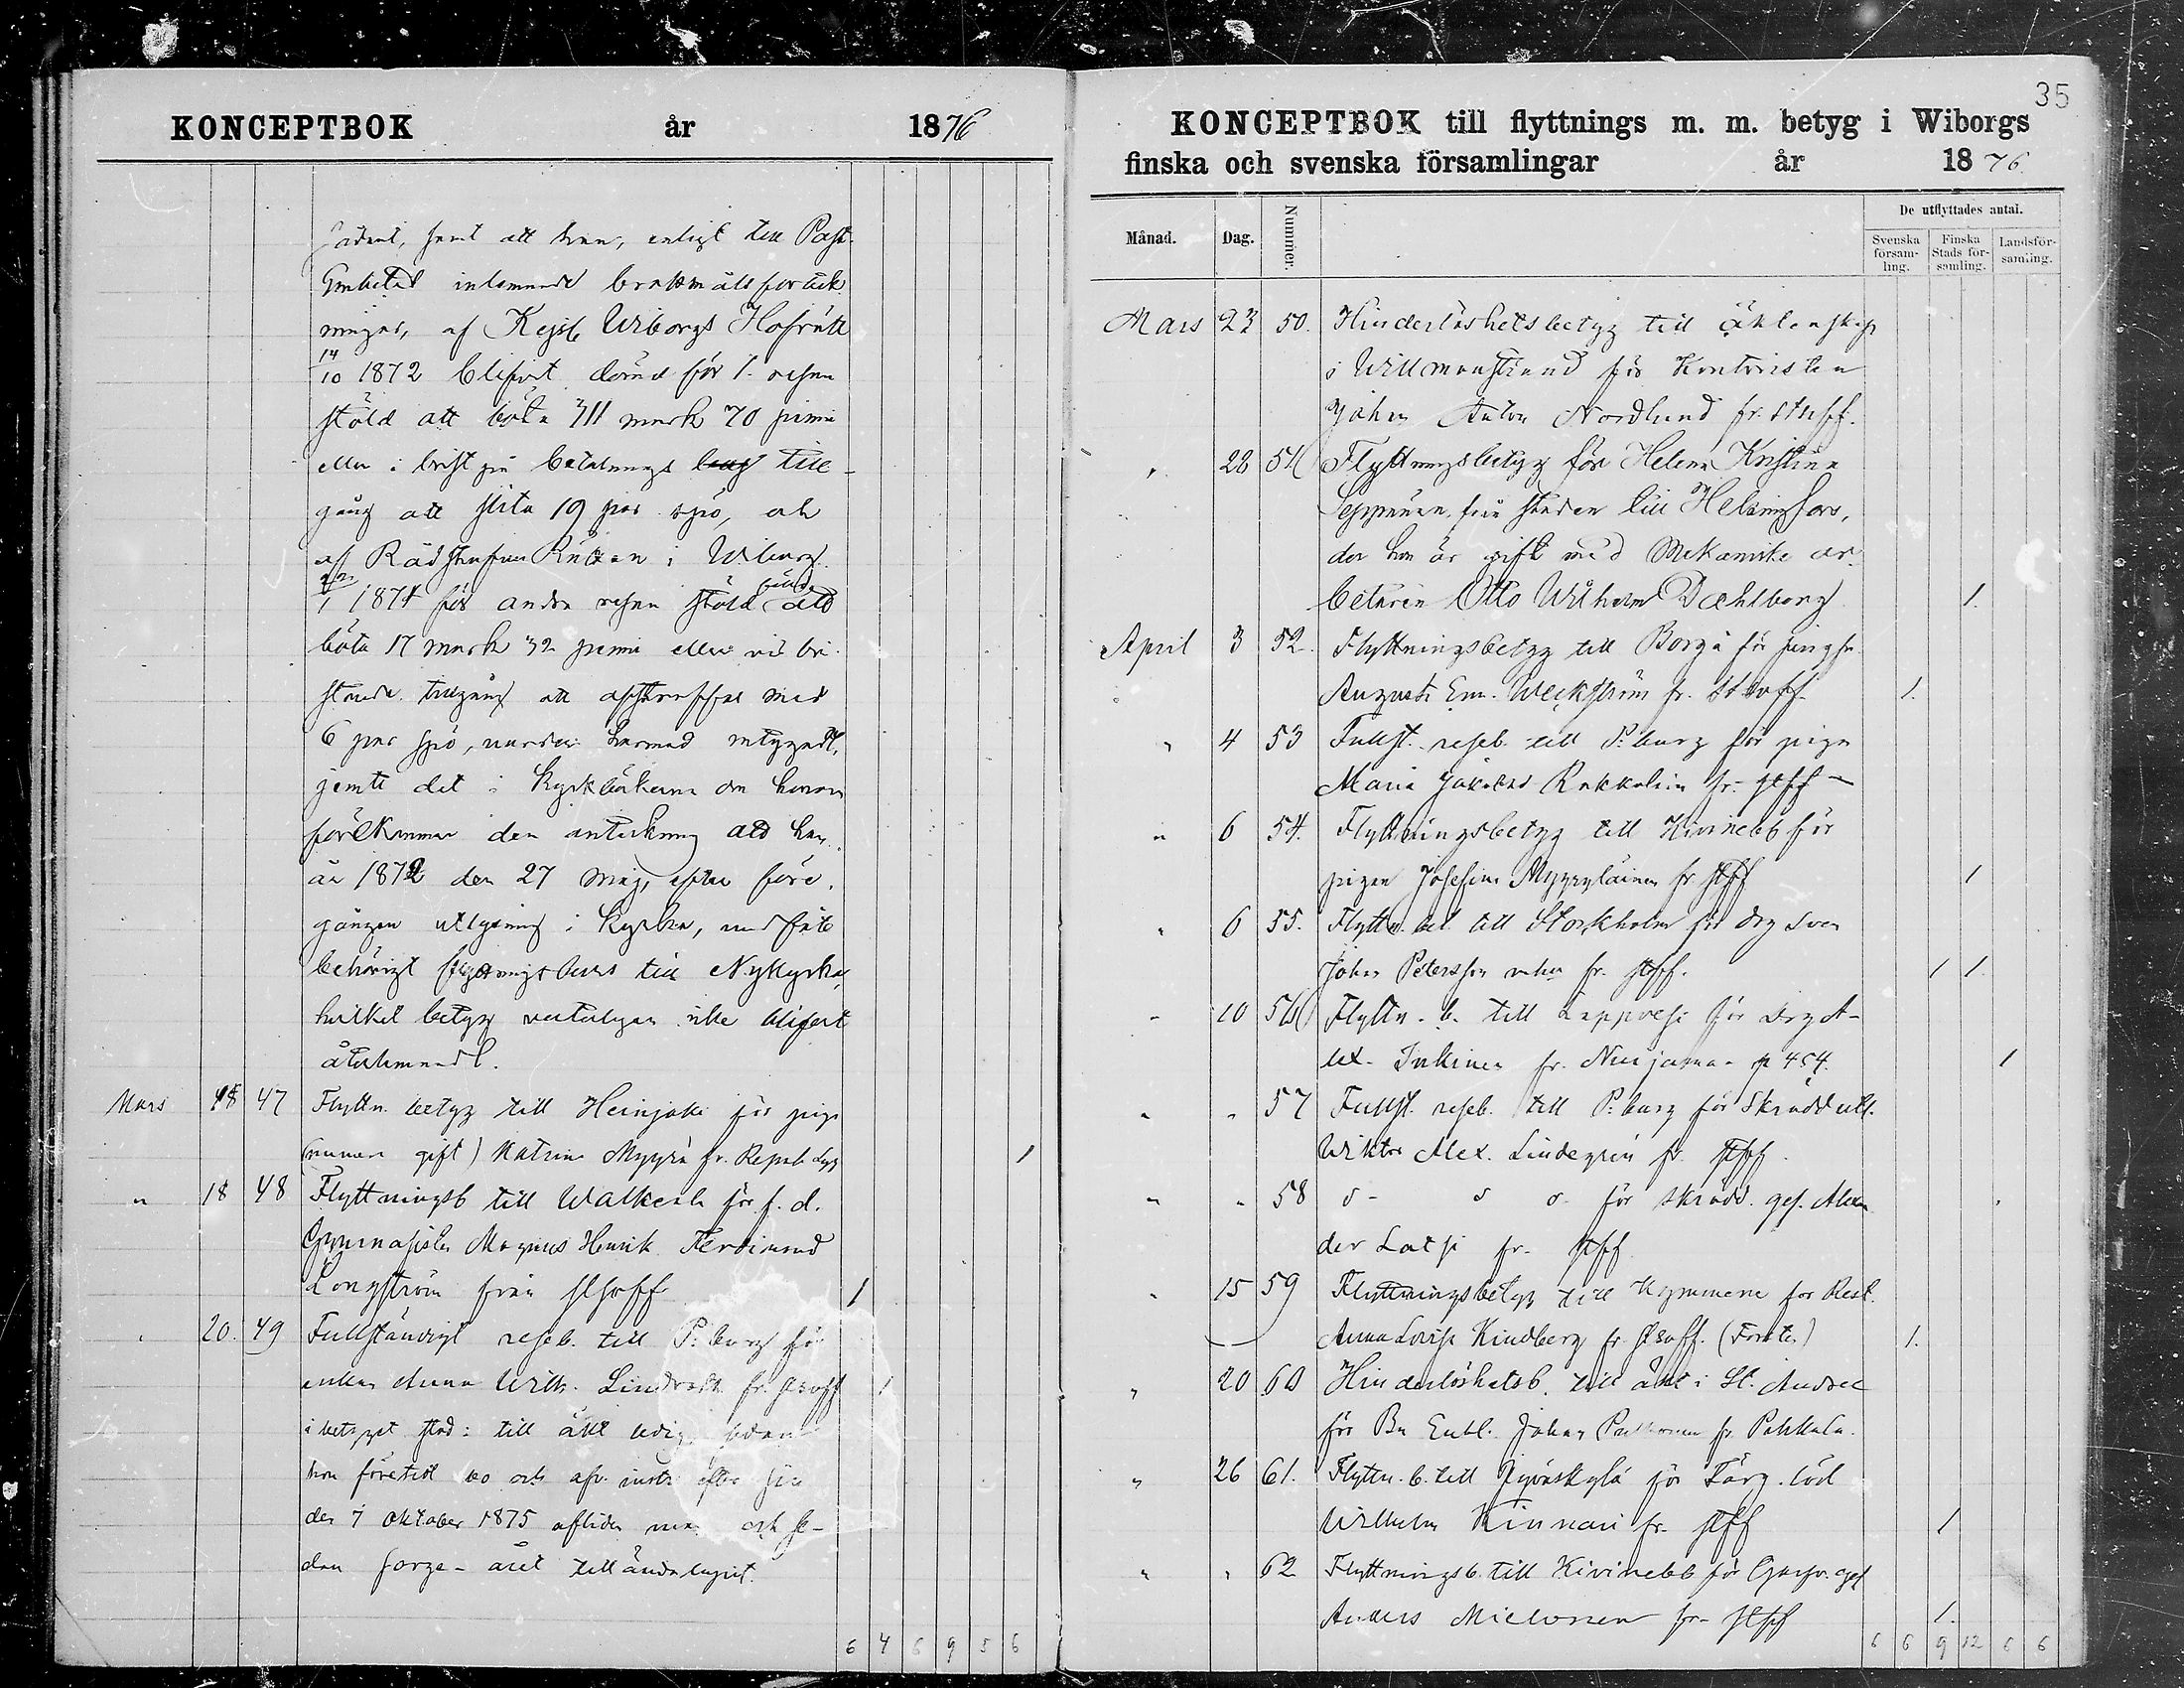 KONCEPTBOK år 1876
samt att han, enligt till Past.
Embetet inlemnade brottmålsförteck
ningar, af Kejs. Wiborgs Hofrätt
14/10 1872 blifvit dömd för 1. resan
stöld att böta 711 mark 70 penni
eller i brist på betalnings till-
gång att slita 19 par spö, och
af Rådstufvu Rätten i Wiborg
1874 för andra resan stöld att
böta 17 mark 32 penni eller vid bri
stande tillgång att afstraffas med
6 par spö, varder härmed intygadt,
jemte det i Kyrkböckerna om honom
förekommer den anteckning att han
år 1872 den 27 Maj, efter före-
gången utlysning i Kyrkan, undfått
behörigt flyttningsbevis till Nykyrka,
hvilket betyg veterligen icke blifvit
återlemnadt.
Mars 18 47 Flyttn. betyg till Heinjoki för pigan
(numera gift) Katrina Myyrä fr.
" 18 48 Flyttningsb till Walkeala för f. d.
Gymnasisten Magnus Henrik Ferdinand
Långström från 1
" 20. 49 Fullständigt reseb. till P:burg för
enkan Anna Wilh. fr. 1
i betyget stod: till äkt ledig sedan
hon företett bo och afv. instr. efter sin
den 7 Oktober 1875 aflidne man och se-
dan sorge-året tilländalupit.
6 4 6 9 5 6
35
KONCEPTBOK till flyttnings m. m. betyg i Wiborgs
finska och svenska församlingar år 1876
Månad. Dag. Nummer. De utflyttades antal.
Svenska församling. Finska Stads församling. Landsförsamling.
Mars 23 50. Hinderlöshetsbetyg till äktenskap
i Willmanstrand för Kontoristen
Johan Anton Nordlund fr.
" 28 51 Flyttningsbetyg för Helena Kristina
Seppänen från staden till Helsingfors,
der hon är gift med Mekaniske ar-
betaren Otto Wilhelm Dahlberg 1.
April 3 52. Flyttningsbetyg till Borgå för
Augusta Em. Weckström fr. 1.
" 4 53 Fullst. reseb. till P:burg för pigan
Maria fr. stff
" 6 54. Flyttningsbetyg till Kivinebb för
pigan Josefina Myyryläinen fr stff 1
" 6 55. Flyttn. bet. till Stockholm för drg Sven
Johan Petersson fr. stff. 1 1.
" 10 56 Flyttn. b. till Lappvesi för drg A-
lex. Inkinen fr. Nuijamaa p 454. 1
" " 57 Fullst. reseb. till P:burg för
Wiktor Alex. Lindegren fr. stff.
" " 58 d- d d- för skrädd. ges. Alexan
der Latsi fr. stff
" 15 59 Flyttningsbetyg till Kymmene for Rest.
Anna Lovisa Kindberg fr. 1.
" 20 60 Hinderlöshetsb. till äkt i St. Andreæ
för Johan fr.
" 26 61. Flyttn. b. till Jyväskylä för
Wilhelm Kinnari fr. stff 1
" " 62 Flyttningsb. till Kivinebb för Garfv. ges
Anders Mielonen fr. stff 1.
6 6 9 12 6 6